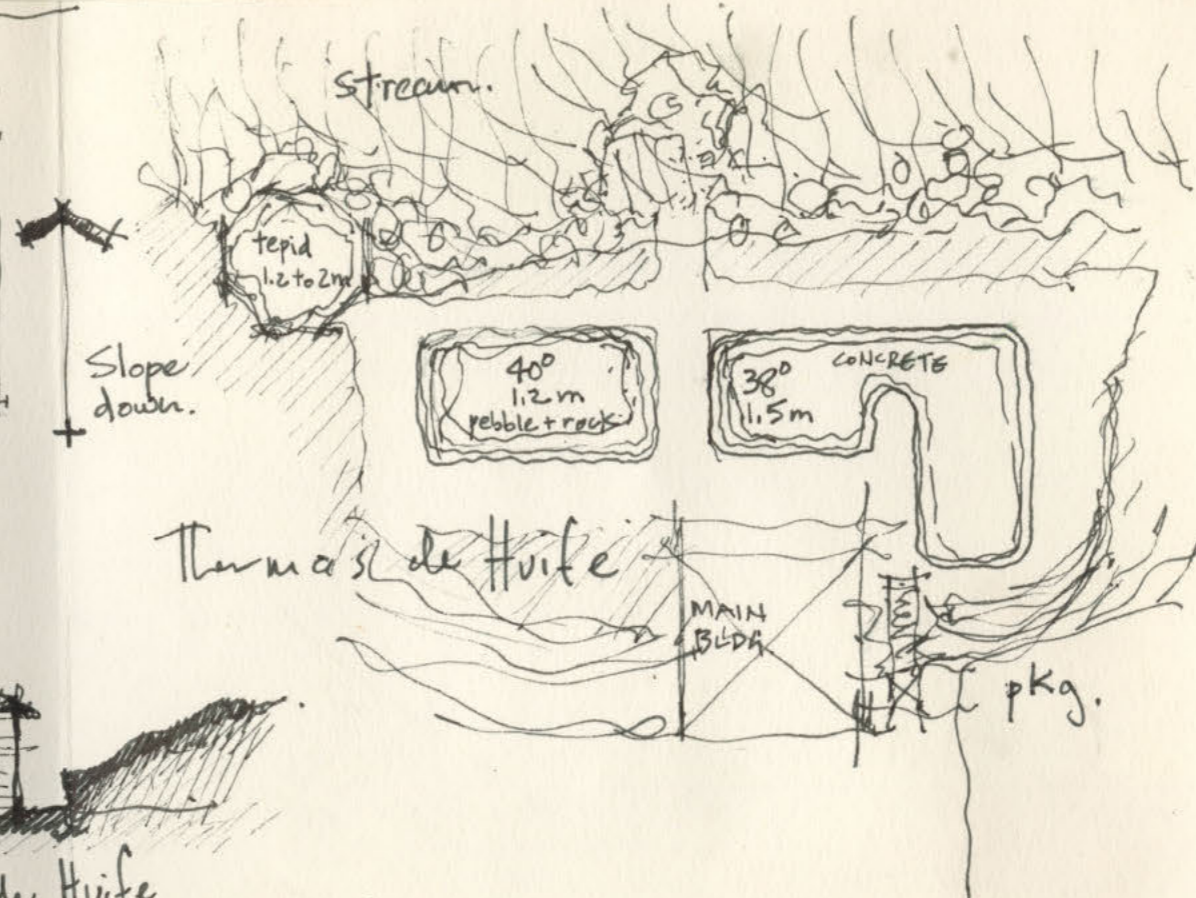 stream.
tepid
1.2 to 2m
Slope
down.
40°
1.2 m
pebble + rock
CONCRETE
38°
1.5m
Thermas de Huife
MAIN
BLDG
pkg.
de Huife